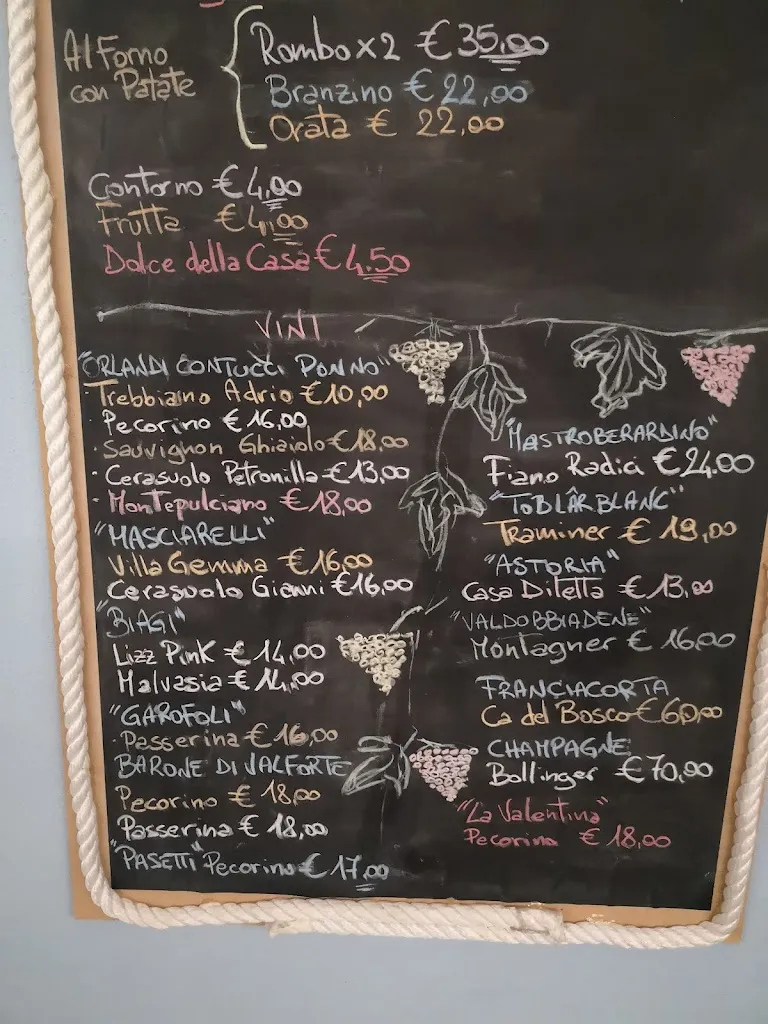 Al Forno
con Patate
Rombo x2 € 35,00
Branzino € 22,00
Orata € 22,00
Contorno € 4,00
Frutta € 4,00
Dolce della Casa € 4,50
VINI
"ORLANDI CONTUCCI PONNO"
· Trebbiamo Adrio € 10,00
· Pecorino € 16,00
· Sauvignon Ghiaiolo € 18,00
· Cerasuolo Petronilla € 13,00
· Montepulciano € 18,00
"MASCIARELLI"
Villa Gemma € 16,00
Cerasuolo Gianni € 16,00
"BIAGI"
Lizz Pink € 14,00
Malvasia € 14,00
"GAROFOLI"
· Passerina € 16,00
BARONE DI VALFORTE
Pecorino € 18,00
Passerina € 18,00
"PASETTI" Pecorino € 17,00
"MASTROBERARDINO"
Fiano Radici € 24.00
"TOBLÂR BLANC"
Traminer € 19,00
"ASTORIA"
Casa Diletta € 13,00
"VALDOBBIADENE"
Montagner € 16,00
FRANCIACORTA
Ca del Bosco € 60,00
CHAMPAGNE
Bollinger € 70,00
"La Valentina"
Pecorino € 18,00